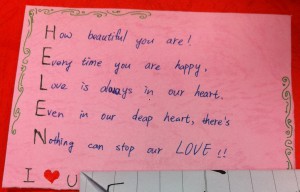 How beautiful you are!
Every time you are happy,
Love is always in our heart.
Even in our deap heart, there's
Nothing can stop our LOVE!!
I ❤ U